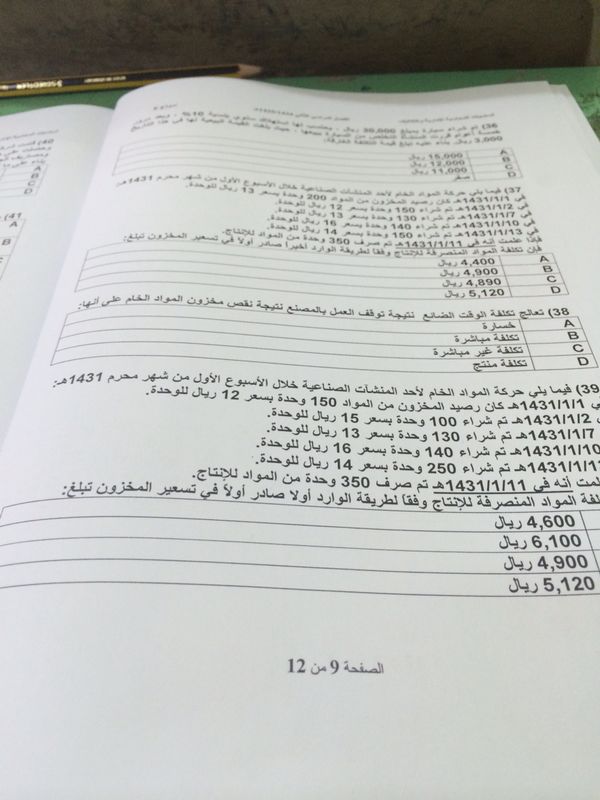 36) تم شراء سيارة بمبلغ 30,000 ريال ، يحتسب لها استهلاك سنوي بنسبة 10% ، وبعد مرور
خمسة أعوام قررت المنشأة التخلص من السيارة ببيعها ، حيث بلغت القيمة البيعية لها في هذا التاريخ
3,000 ريال. بناء عليه تبلغ قيمة التكلفة الغارقة:
A 15,000 ريال
B 12,000 ريال
C 11,000 ريال
D صفر
37) فيما يلي حركة المواد الخام لأحد المنشآت الصناعية خلال الأسبوع الأول من شهر محرم 1431هـ:
في 1431/1/1هـ كان رصيد المخزون من المواد 200 وحدة بسعر 13 ريال للوحدة.
في 1431/1/2هـ تم شراء 150 وحدة بسعر 12 ريال للوحدة.
في 1431/1/7هـ تم شراء 130 وحدة بسعر 13 ريال للوحدة.
في 1431/1/10هـ تم شراء 140 وحدة بسعر 16 ريال للوحدة.
في 1431/1/13هـ تم شراء 150 وحدة بسعر 14 ريال للوحدة.
فإذا علمت أنه في 1431/1/11هـ تم صرف 350 وحدة من المواد للإنتاج.
فإن تكلفة المواد المنصرفة للإنتاج وفقا لطريقة الوارد أخيرا صادر أولا في تسعير المخزون تبلغ:
A 4,400 ريال
B 4,900 ريال
C 4,890 ريال
D 5,120 ريال
38) تعالج تكلفة الوقت الضائع نتيجة توقف العمل بالمصنع نتيجة نقص مخزون المواد الخام على أنها:
A خسارة
B تكلفة مباشرة
C تكلفة غير مباشرة
D تكلفة منتج
39) فيما يلي حركة المواد الخام لأحد المنشآت الصناعية خلال الأسبوع الأول من شهر محرم 1431هـ:
في 1431/1/1هـ كان رصيد المخزون من المواد 150 وحدة بسعر 12 ريال للوحدة.
1431/1/2هـ تم شراء 100 وحدة بسعر 15 ريال للوحدة.
1431/1/7هـ تم شراء 130 وحدة بسعر 13 ريال للوحدة.
1431/1/10هـ تم شراء 140 وحدة بسعر 16 ريال للوحدة.
تم شراء 250 وحدة بسعر 14 ريال للوحدة.
أنه في 1431/1/11هـ تم صرف 350 وحدة من المواد للإنتاج.
المواد المنصرفة للإنتاج وفقا لطريقة الوارد أولا صادر أولاً في تسعير المخزون تبلغ:
4,600 ريال
6,100 ريال
4,900 ريال
5,120 ريال
الصفحة 9 من 12
40)
A
B
C
D
41)
A
B
C
D